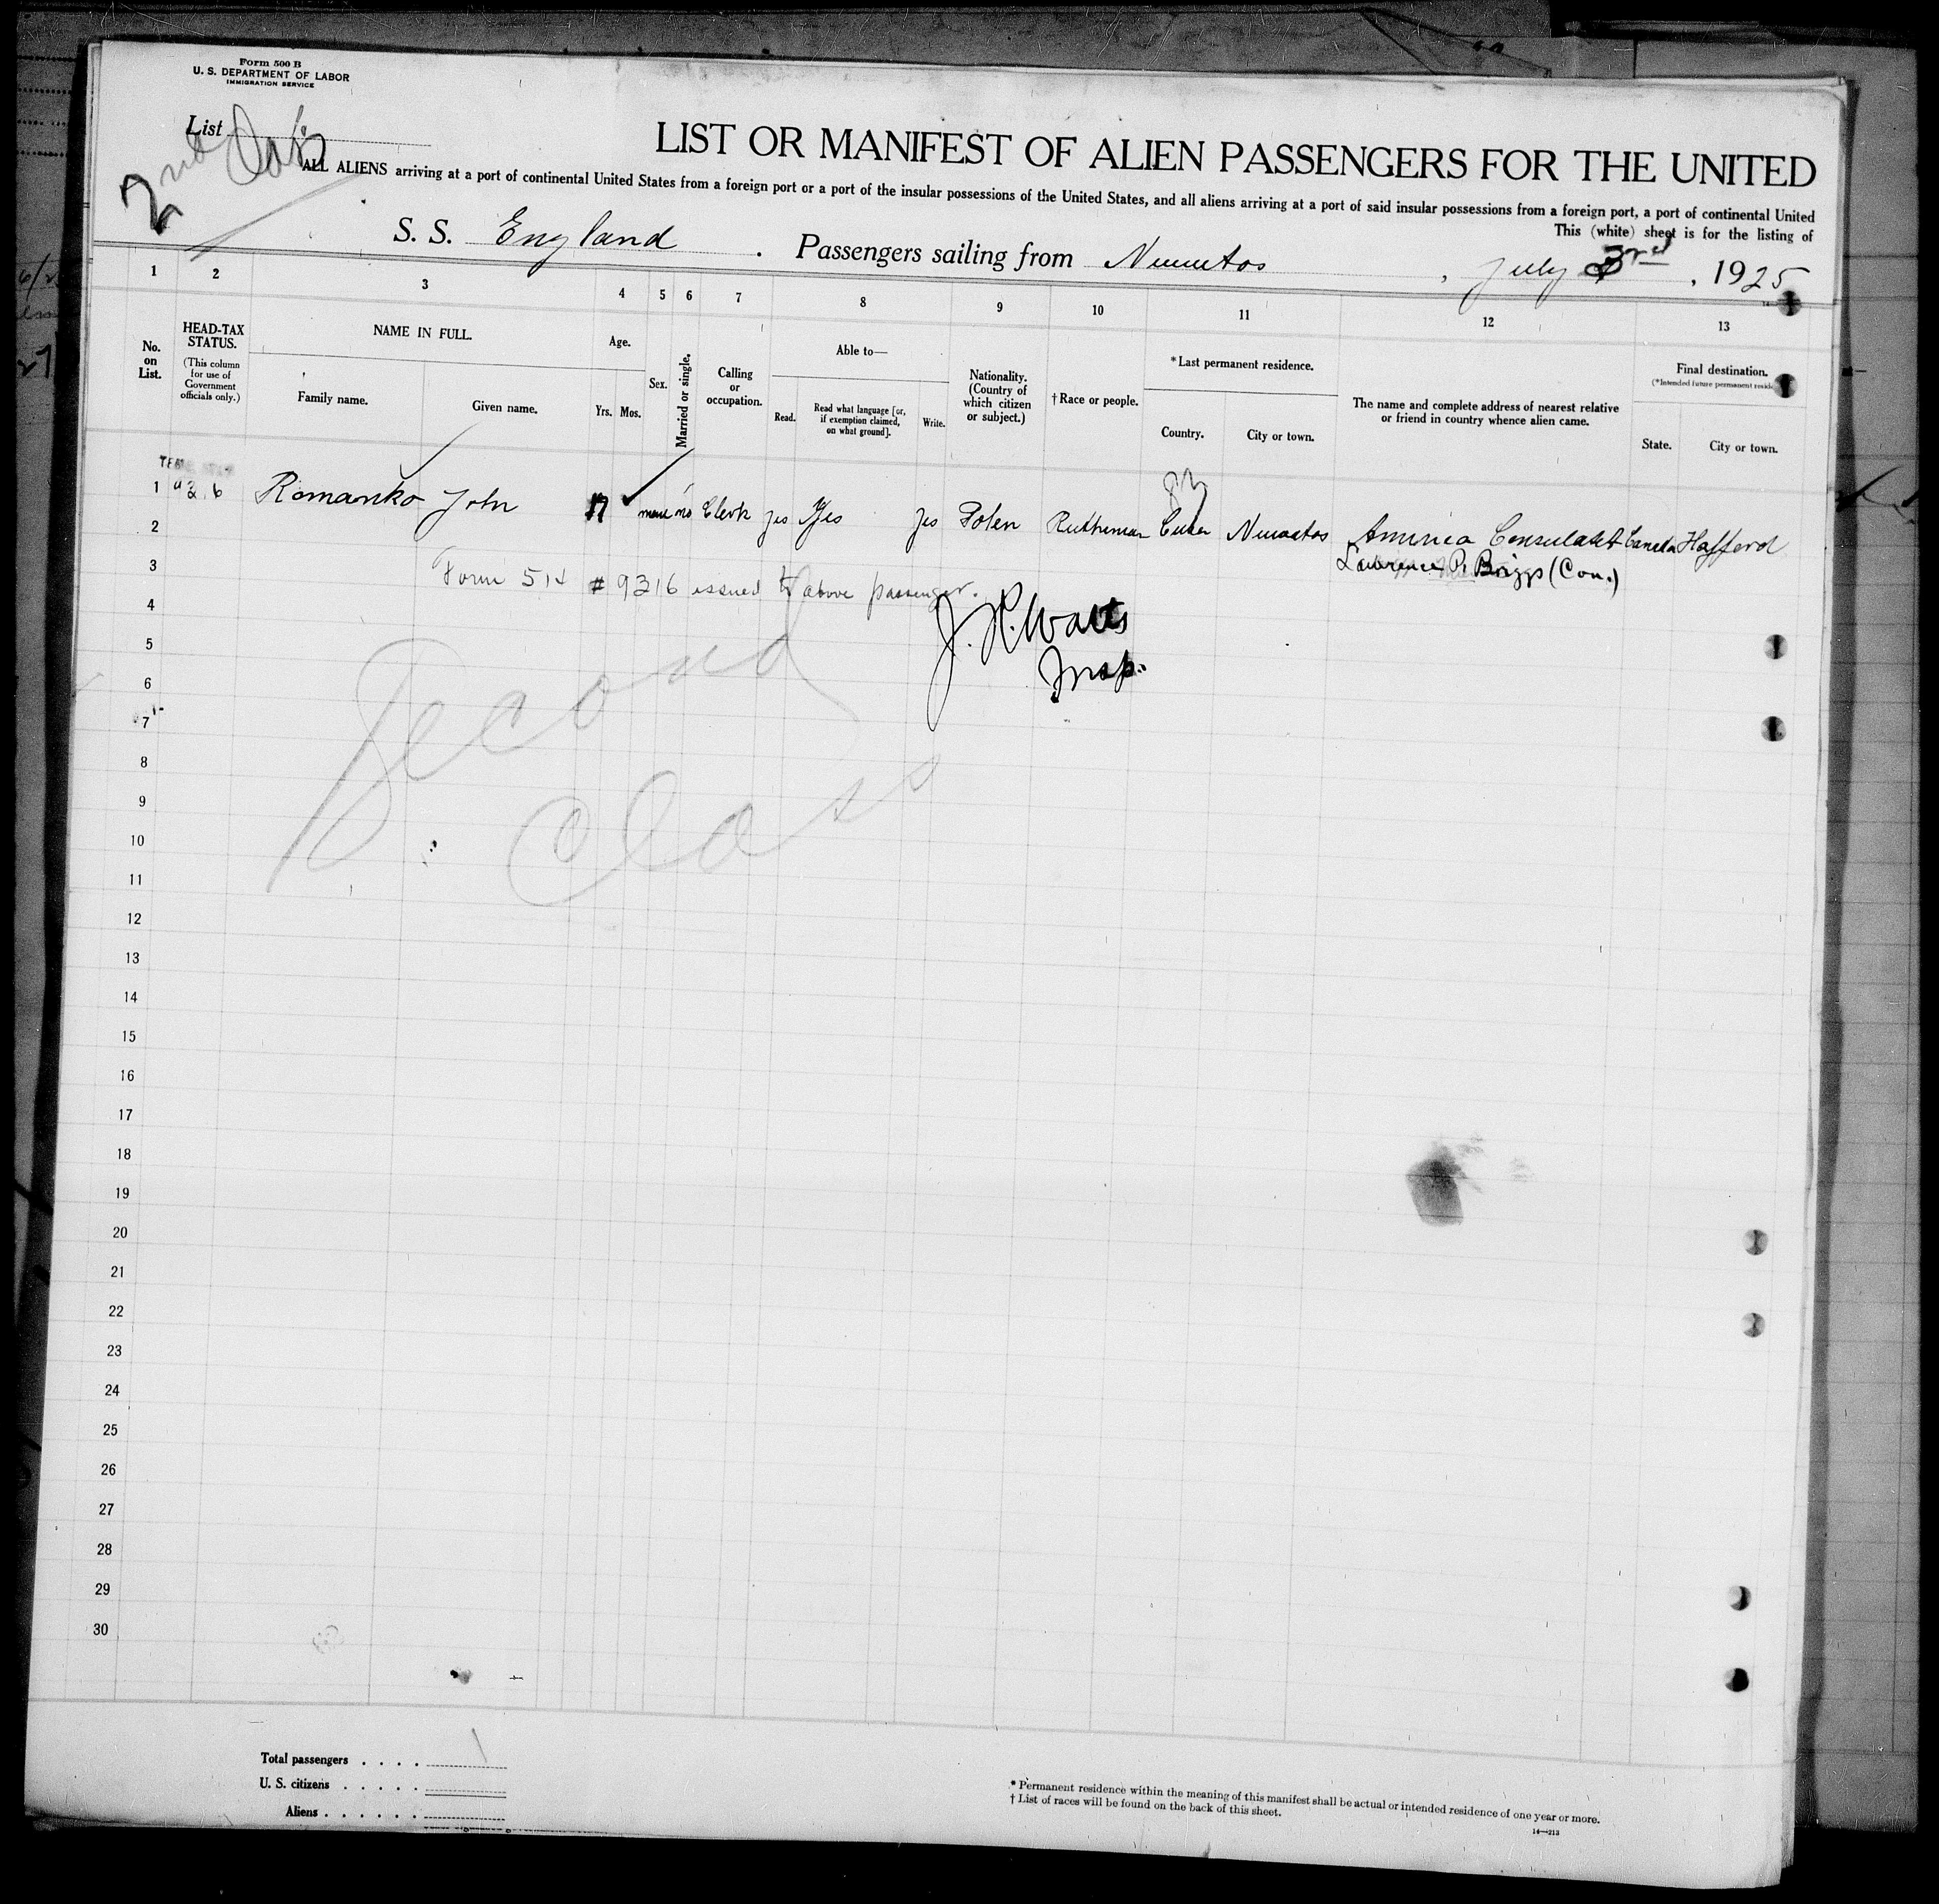 Form 500 B
U. S. DEPARTMENT OF LABOR
IMMIGRATION SERVICE
List
2nd Cab
LIST OR MANIFEST OF ALIEN PASSENGERS FOR THE UNITED
ALL ALIENS arriving at a port of continental United States from a foreign port or a port of the insular possessions of the United States, and all aliens arriving at a port of said insular possessions from a foreign port, a port of continental United
This (white) sheet is for the listing of
S. S. England . Passengers sailing from Nuevitas , July 3rd , 1925
1 2 3 4 5 6 7 8 9 10 11 12 13
No. on List.
HEAD-TAX STATUS.
(This column for use of Government officials only.)
NAME IN FULL.
Family name. Given name.
Age.
Yrs. Mos.
Sex.
Married or single.
Calling or occupation.
Able to—
Read. Read what language [or, if exemption claimed, on what ground]. Write.
Nationality. (Country of which citizen or subject.)
†Race or people.
*Last permanent residence.
Country. City or town.
The name and complete address of nearest relative or friend in country whence alien came.
Final destination.
(*Intended future permanent resid
State. City or town.
1 9216 Romanko John 17 no Clerk yes Yes yes Polen Ruthenian Cuba Nuevitas America Consulate Canada Hafford
2 Lawrence P. Briggs (Con.)
3 Form 514 # 9316 issued to above passenger.
4 J. R. Watts
5 Insp.
6
7
8
9
10
11
12
13
14
15
16
17
18
19
20
21
22
23
24
25
26
27
28
29
30
Second
Class
Total passengers . . . . 1
U. S. citizens . . . . .
Aliens . . . . . .
* Permanent residence within the meaning of this manifest shall be actual or intended residence of one year or more.
† List of races will be found on the back of this sheet.
14—213